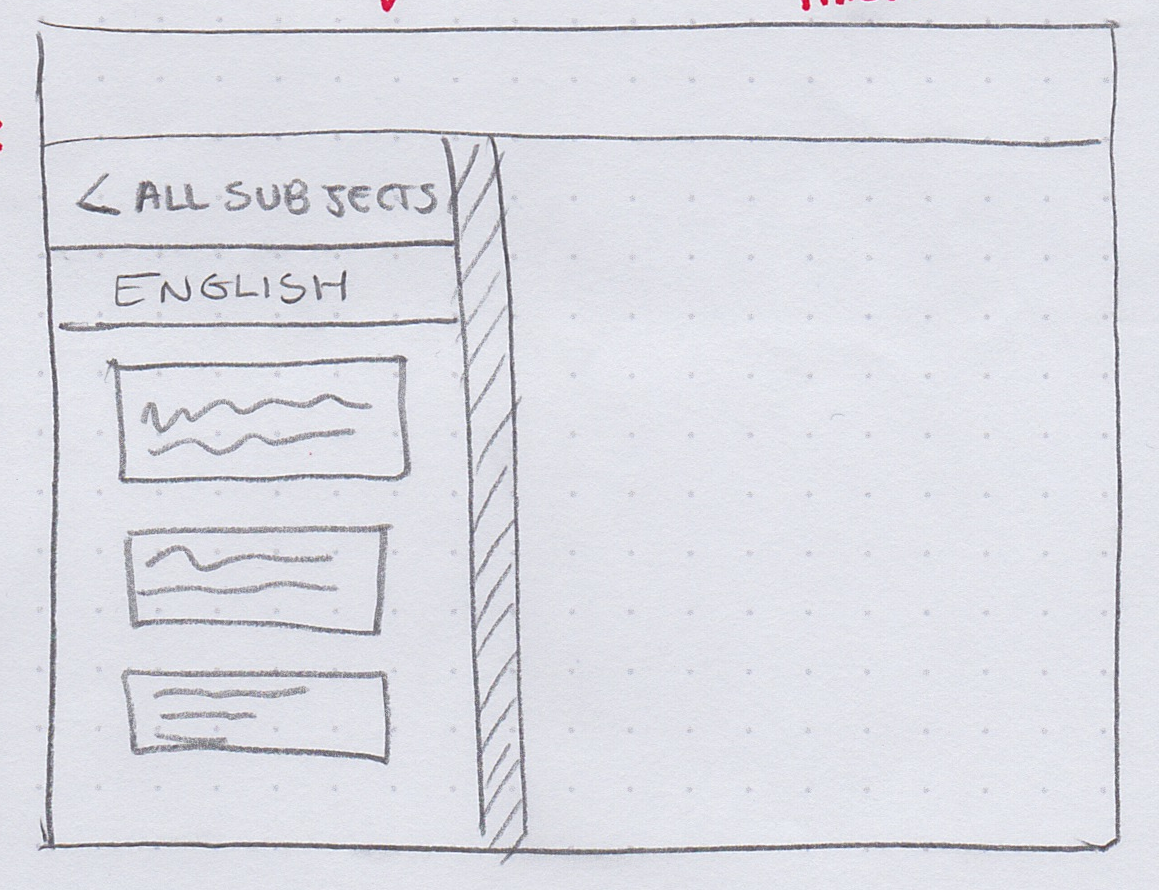 < ALL SUBJECTS
ENGLISH